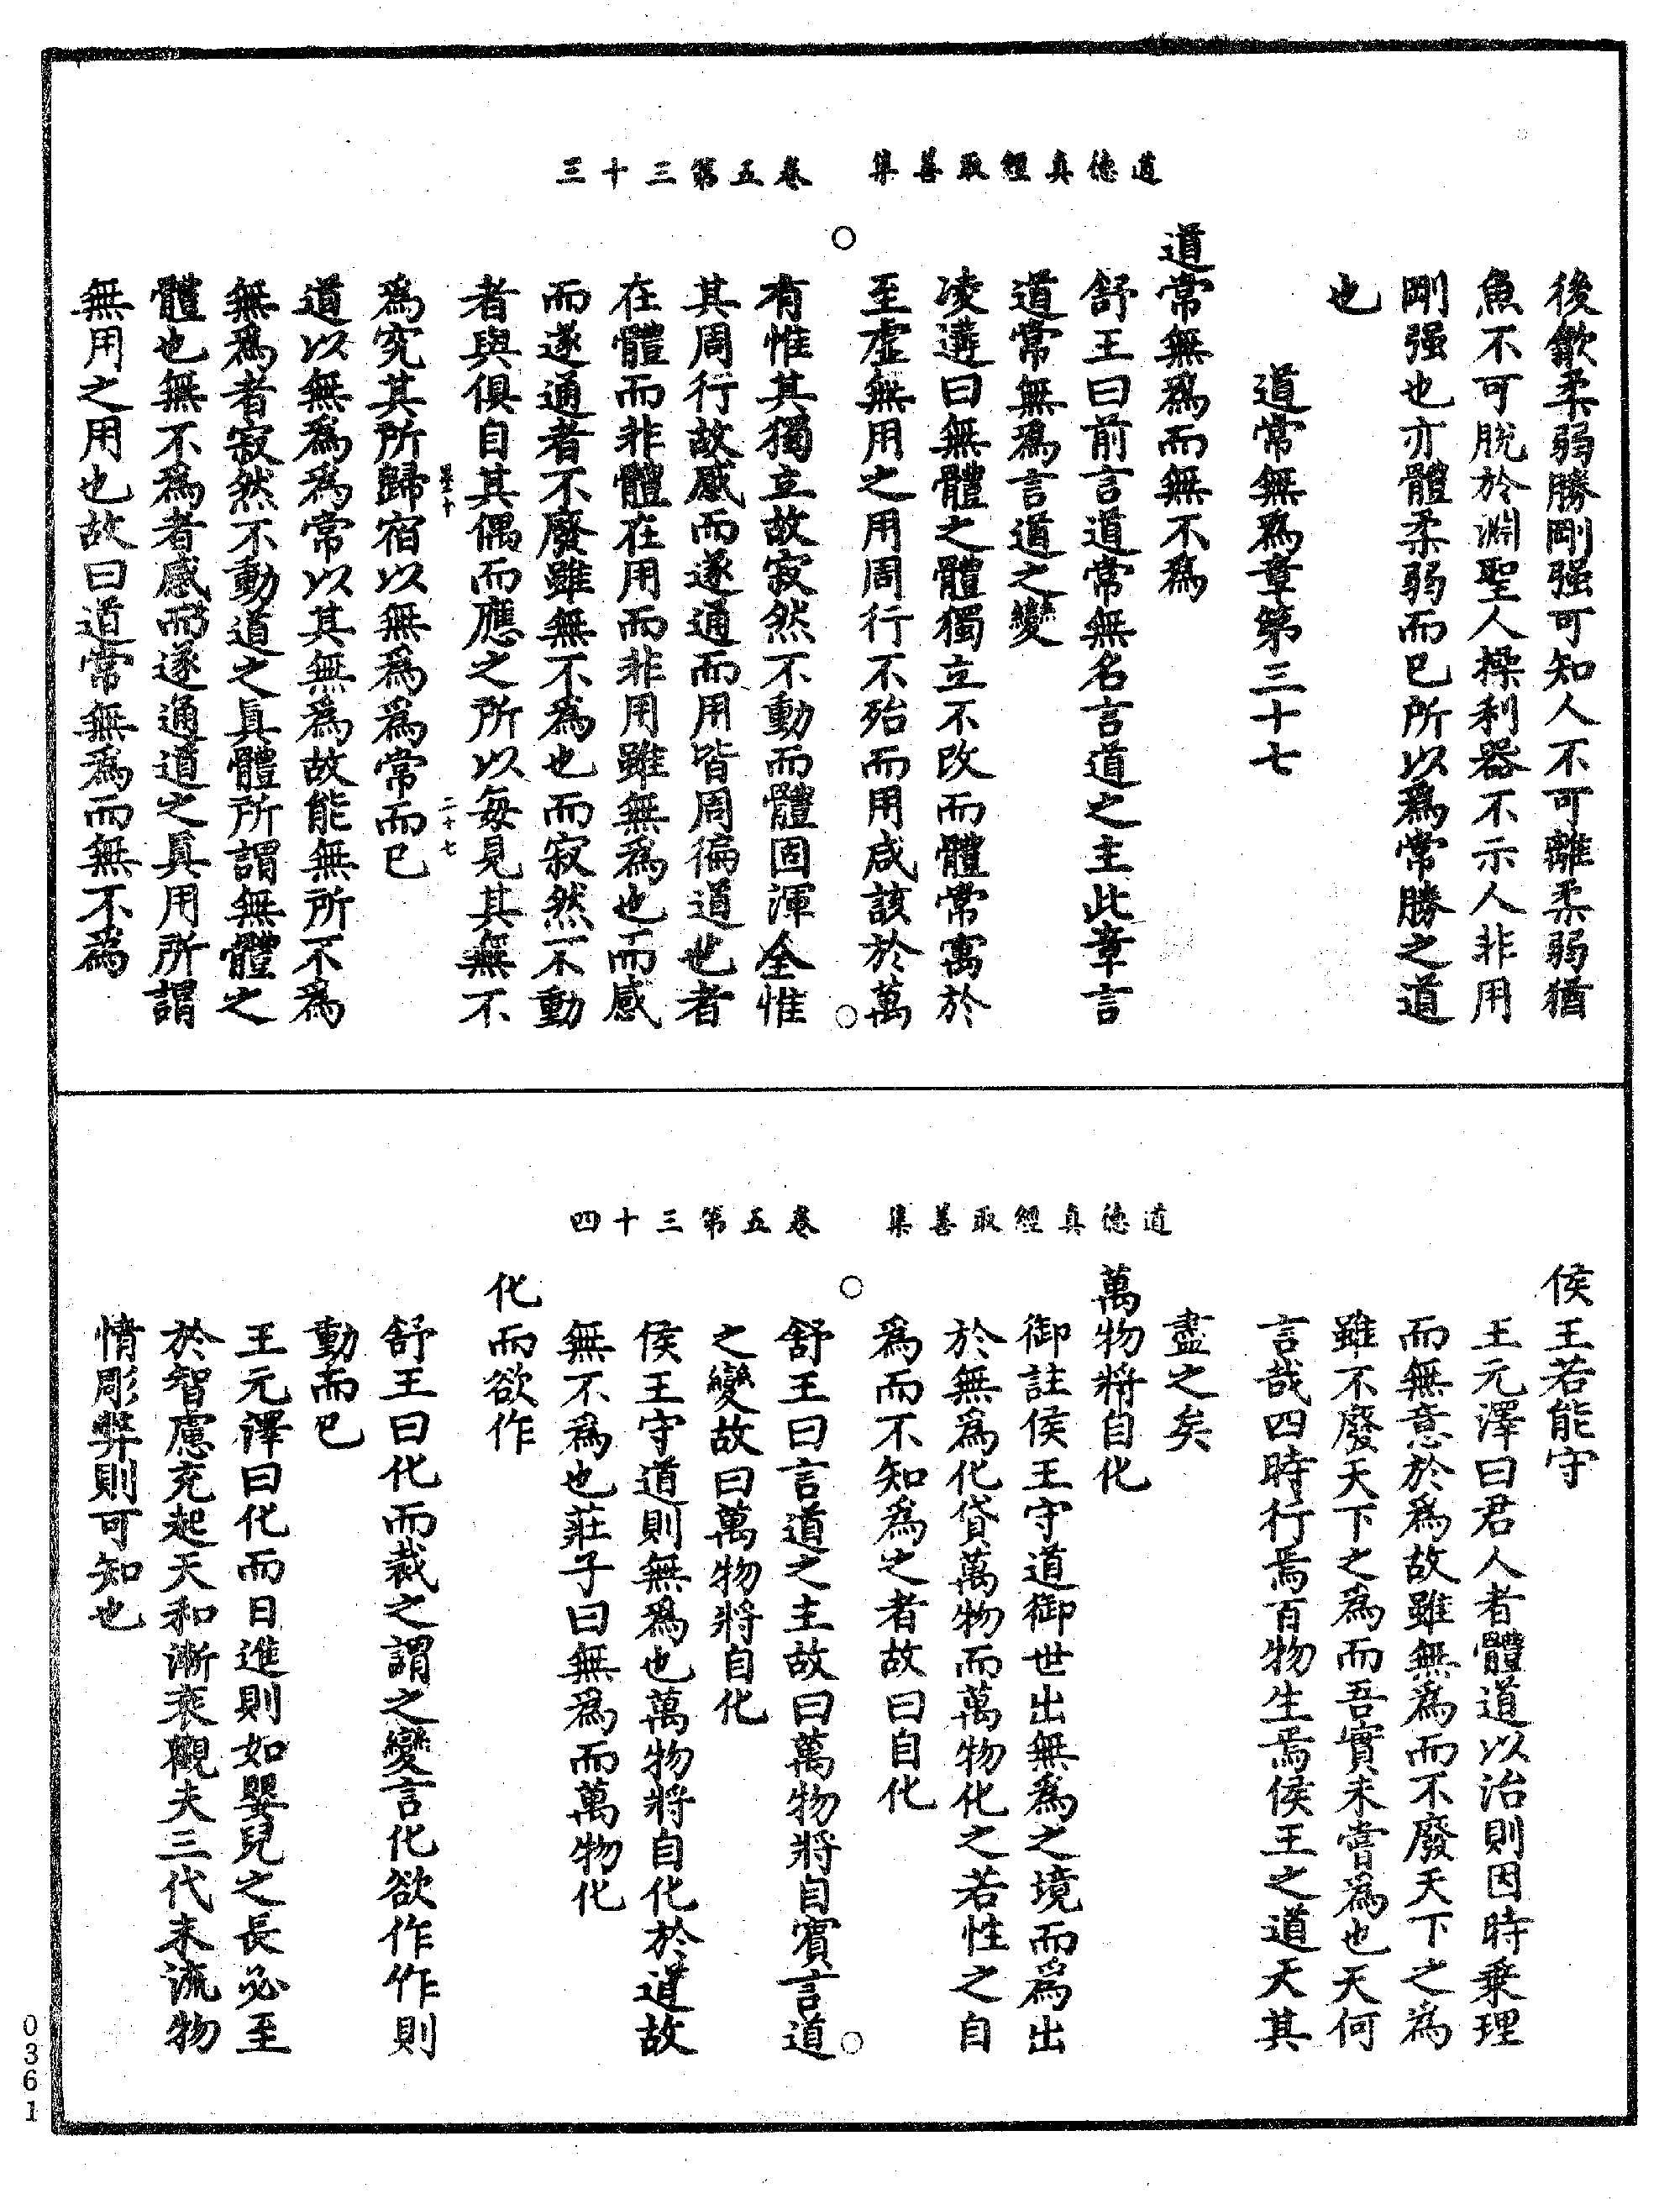 道德真經取善集　卷五第三十三
後歙柔弱勝剛强可知人不可離柔弱猶
魚不可脫於淵聖人操利器不示人非用
剛强也亦體柔弱而已所以爲常勝之道
也
道常無爲章第三十七
道常無爲而無不爲
舒王曰前言道常無名言道之主此章言
道常無爲言道之變
凌遘曰無體之體獨立不改而體常寓於
至虛無用之用周行不殆而用咸該於萬
有惟其獨立故寂然不動而體固渾全惟
其周行故感而遂通而用皆周徧道也者
在體而非體在用而非用雖無爲也而感
而遂通者不廢雖無不爲也而寂然不動
者與俱自其偶而應之所以每見其無不
爲究其所歸宿以無爲爲常而已
二十七
道以無爲爲常以其無爲故能無所不爲
無爲者寂然不動道之真體所謂無體之
體也無不爲者感而遂通道之真用所謂
無用之用也故曰道常無爲而無不爲
道德真經取善集　卷五第三十四
侯王若能守
王元澤曰君人者體道以治則因時乗理
而無意於爲故雖無爲而不廢天下之爲
雖不廢天下之爲而吾實未嘗爲也天何
言哉四時行焉百物生焉侯王之道天其
盡之矣
萬物將自化
御註侯王守道御世出無爲之境而爲出
於無爲化貸萬物而萬物化之若性之自
爲而不知爲之者故曰自化
舒王曰言道之主故曰萬物將自賓言道
之變故曰萬物將自化
侯王守道則無爲也萬物將自化於道故
無不爲也莊子曰無爲而萬物化
化而欲作
舒王曰化而裁之謂之變言化欲作作則
動而已
王元澤曰化而日進則如嬰兒之長必至
於智慮充起天和漸衰觀夫三代末流物
情彫弊則可知也
0361